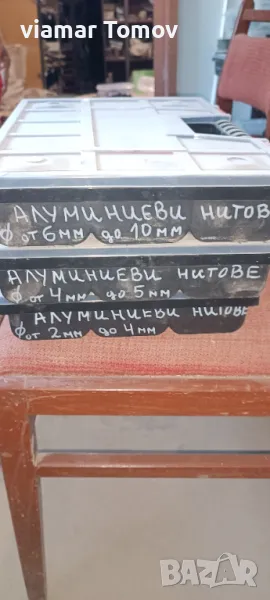 viamar Tomov
АЛУМИНИЕВИ НИТОВЕ
Ф от 6мм до 10мм
АЛУМИНИЕВИ НИТОВЕ
Ф от 4мм до 5мм
АЛУМИНИЕВИ НИТОВЕ
Ф от 2мм до 4мм
BAZAR